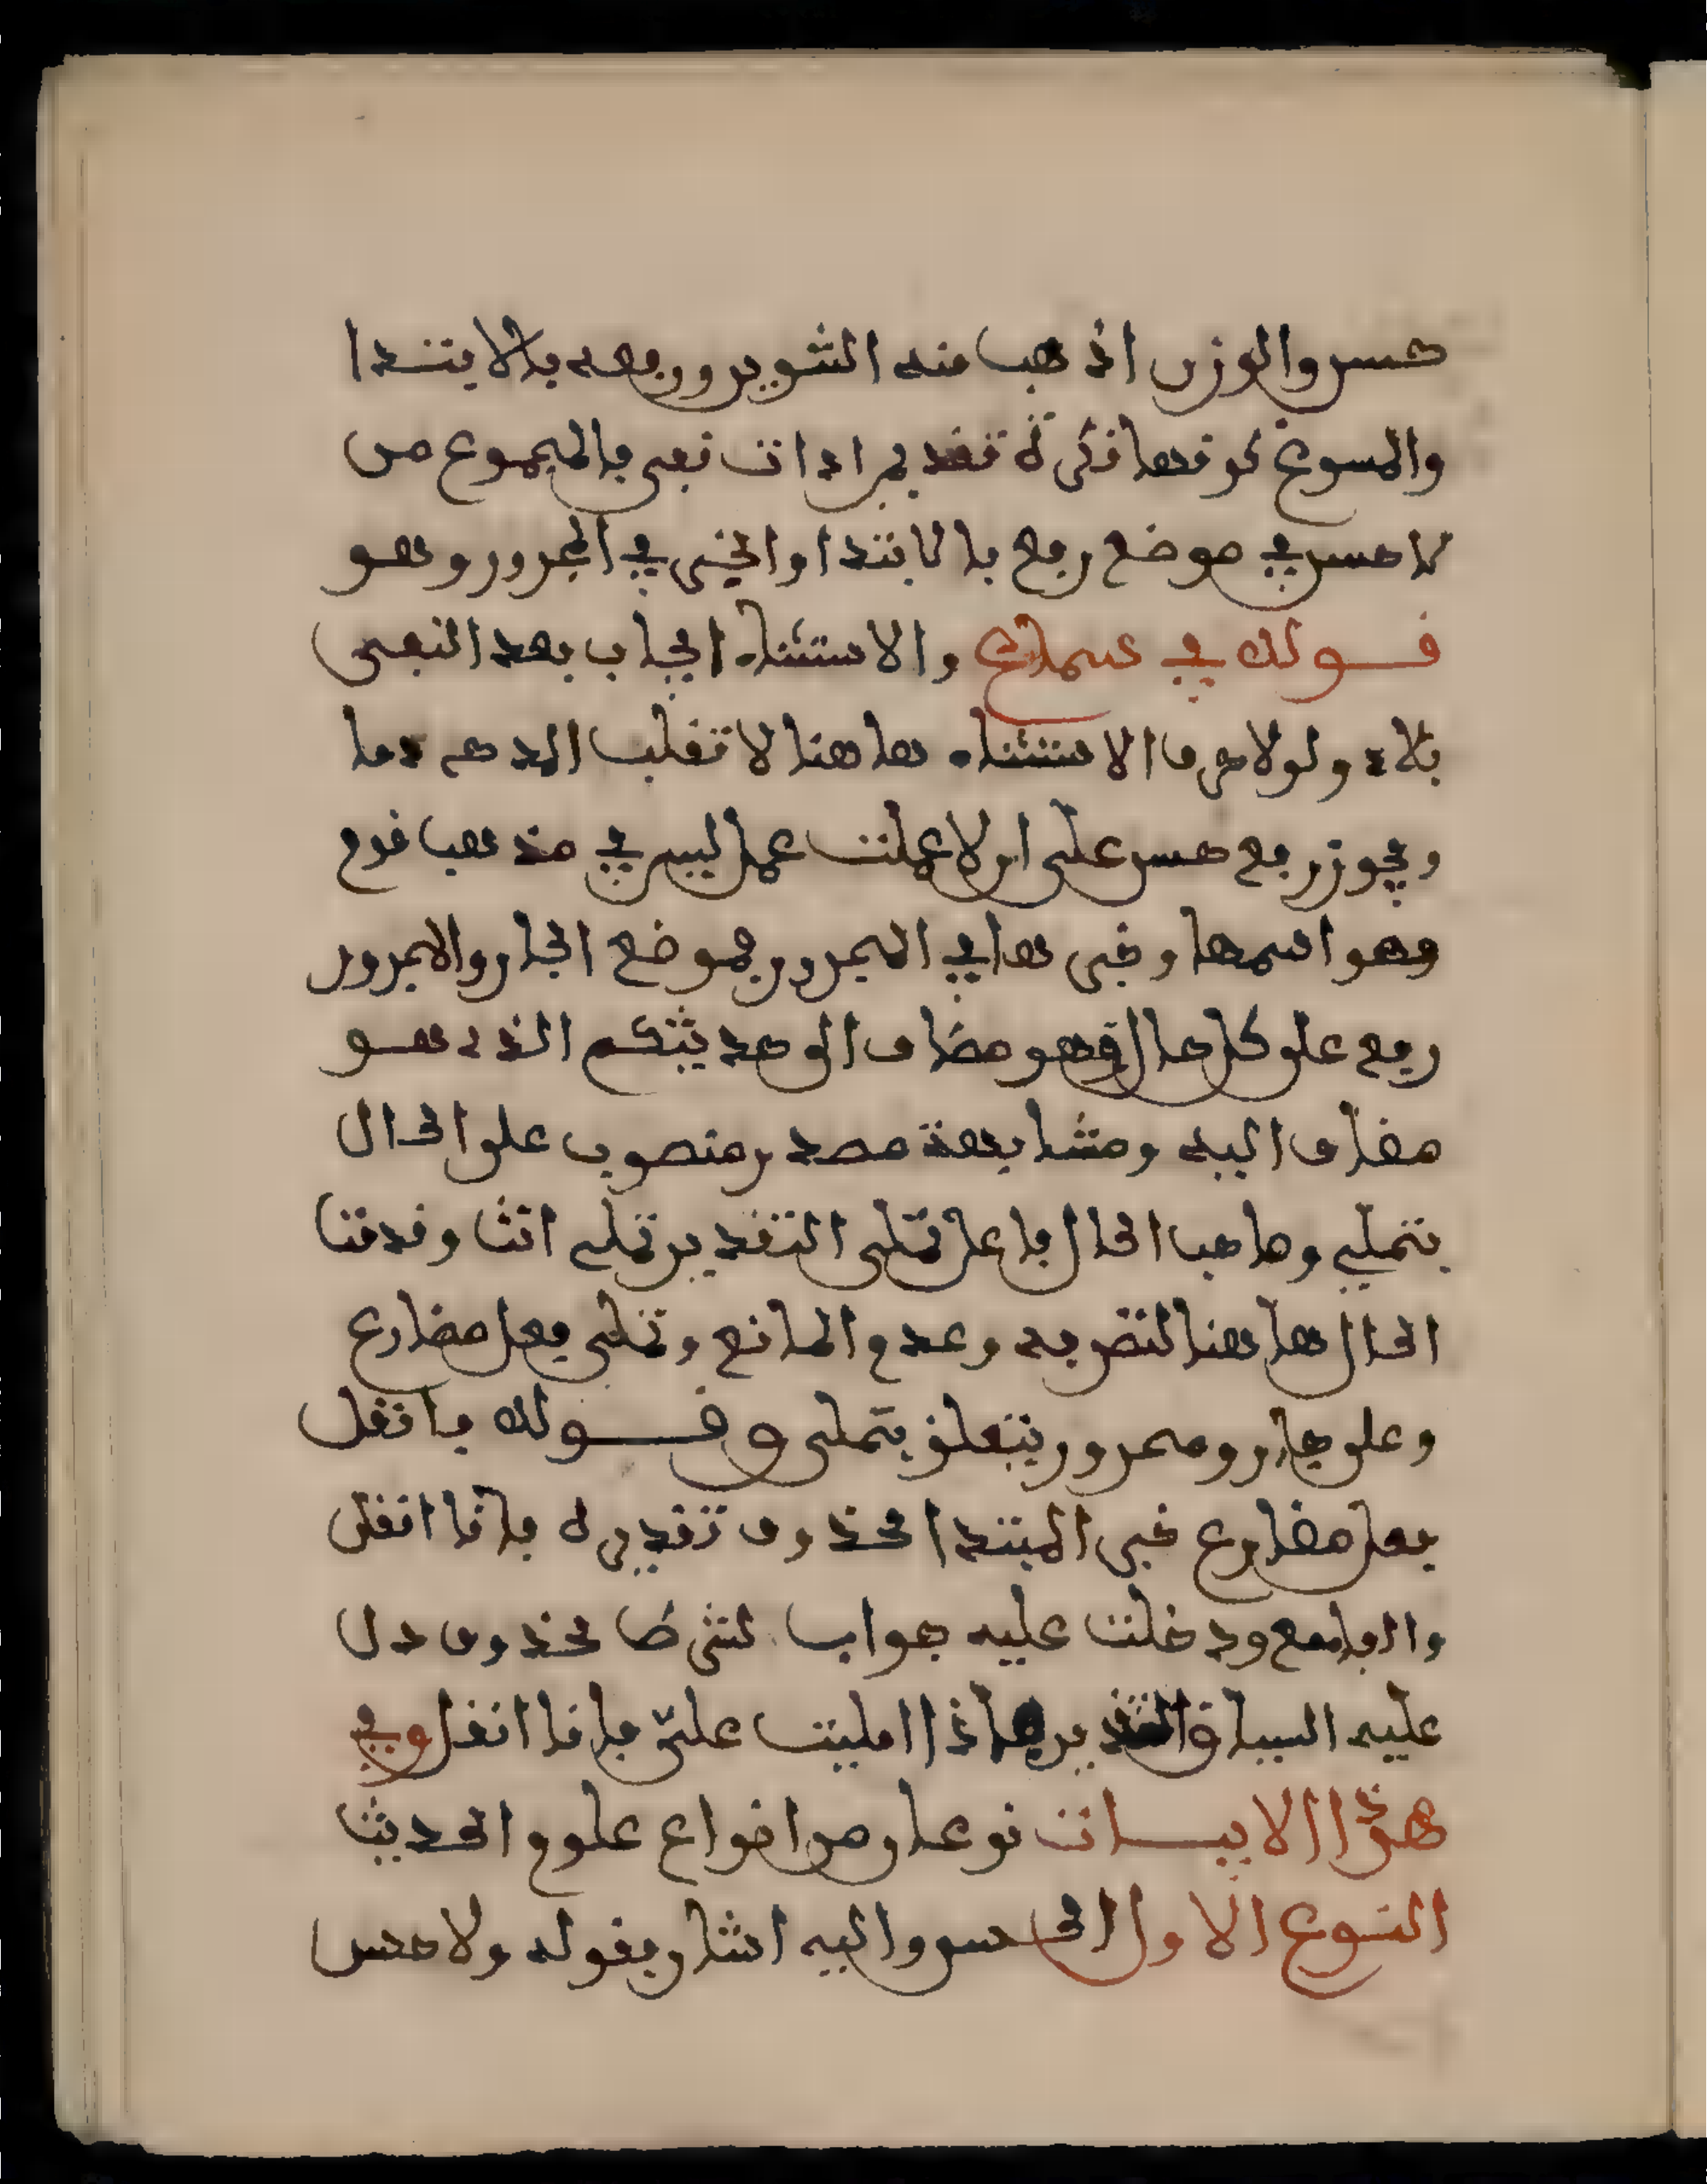 حسن والوزن اذهب منه التنوين ورفعه بالابتدا
والمسوغ لكونها نكرة تقديم اداة نفي فالمجموع من
لا حسن في موضع رفع بالابتدا والخبر في المجرور وهو
قولك في سماع والاستثناء ايجاب بعد النفي
بلا ولولا حرف الاستثناء هاهنا لا تقلب المدح ذما
ويجوز رفع حسن على ان لا عملت عمل ليس في مذهب قوم
وهو اسمها وخبرها في المجرور فموضع الجار والمجرور
رفع على كل حال فهو مضاف الى حديثكم الذي هو
مضاف اليه ومشابهة مصدر منصوب على الحال
بتملي وصاحب الحال فاعل تملى التقدير تملى انت وقدمنا
الحال هاهنا لتصرفه وعدم المانع وتملى فعل مضارع
وعلى جار ومجرور يتعلق بتملى وقولك فانقل
فعل مضارع خبر المبتدا محذوف تقديره فانا انقل
والفا مع ودخلت عليه جواب لشرط محذوف دل
عليه السياق والتقدير هاذا امليت علي فانا انقل وفي
هذا الابيات نوعان من انواع علوم الحديث
النوع الاول الحسن واليه اشار بقوله ولا حسن